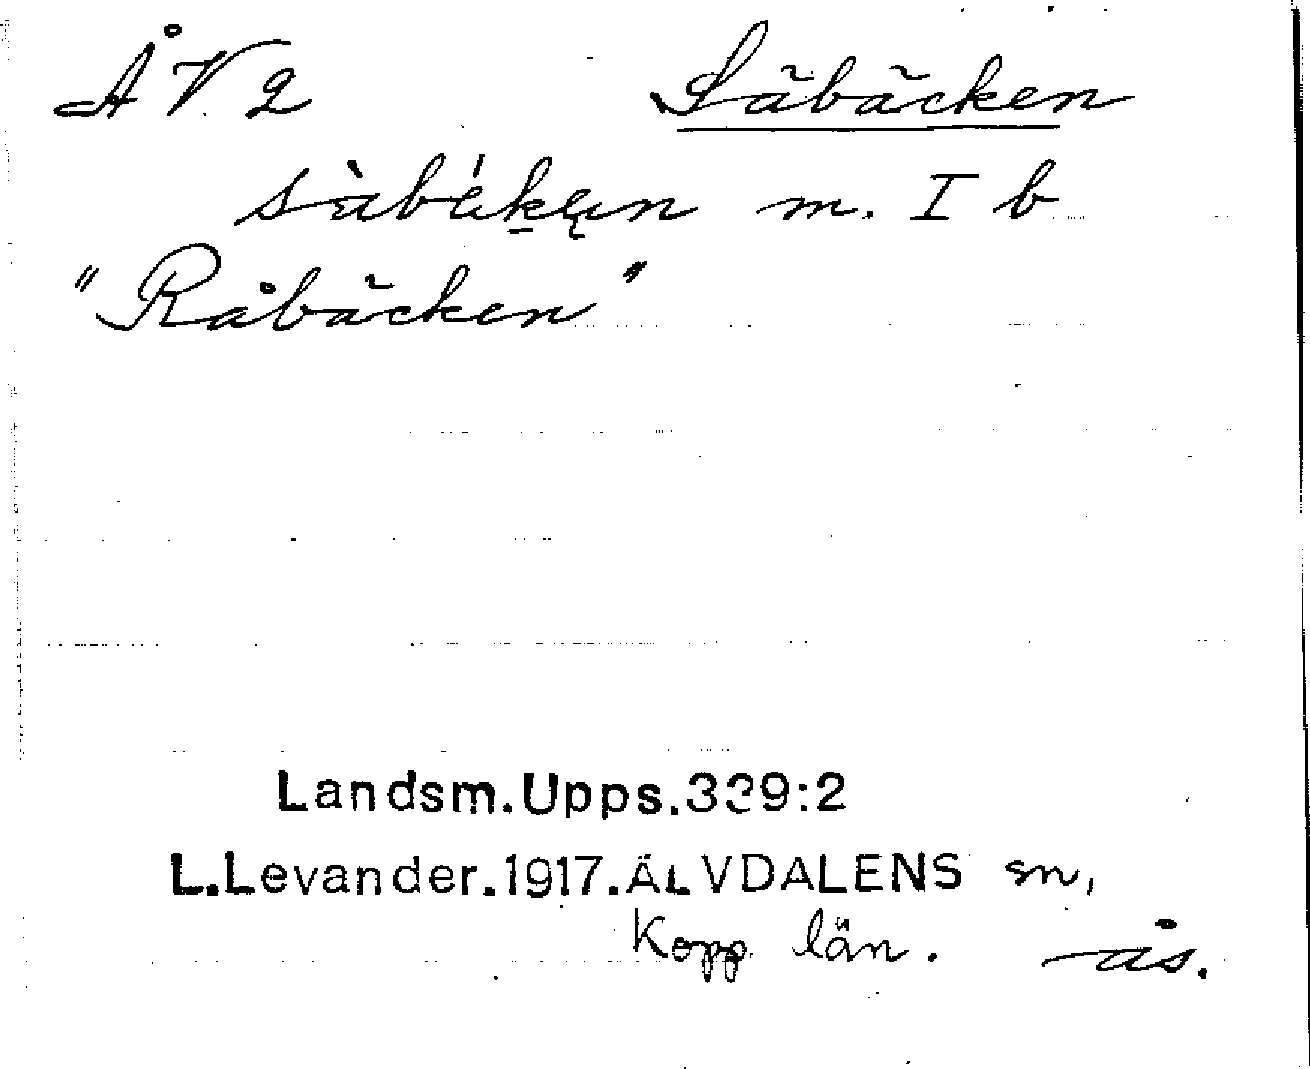 ÅV 2 Säbäcken
sàbä́kęn m. I b
"Råbäcken"
Landsm.Upps.339:2
L.Levander.1917.ÄLVDALENS sn,
Kopp. län. ås.